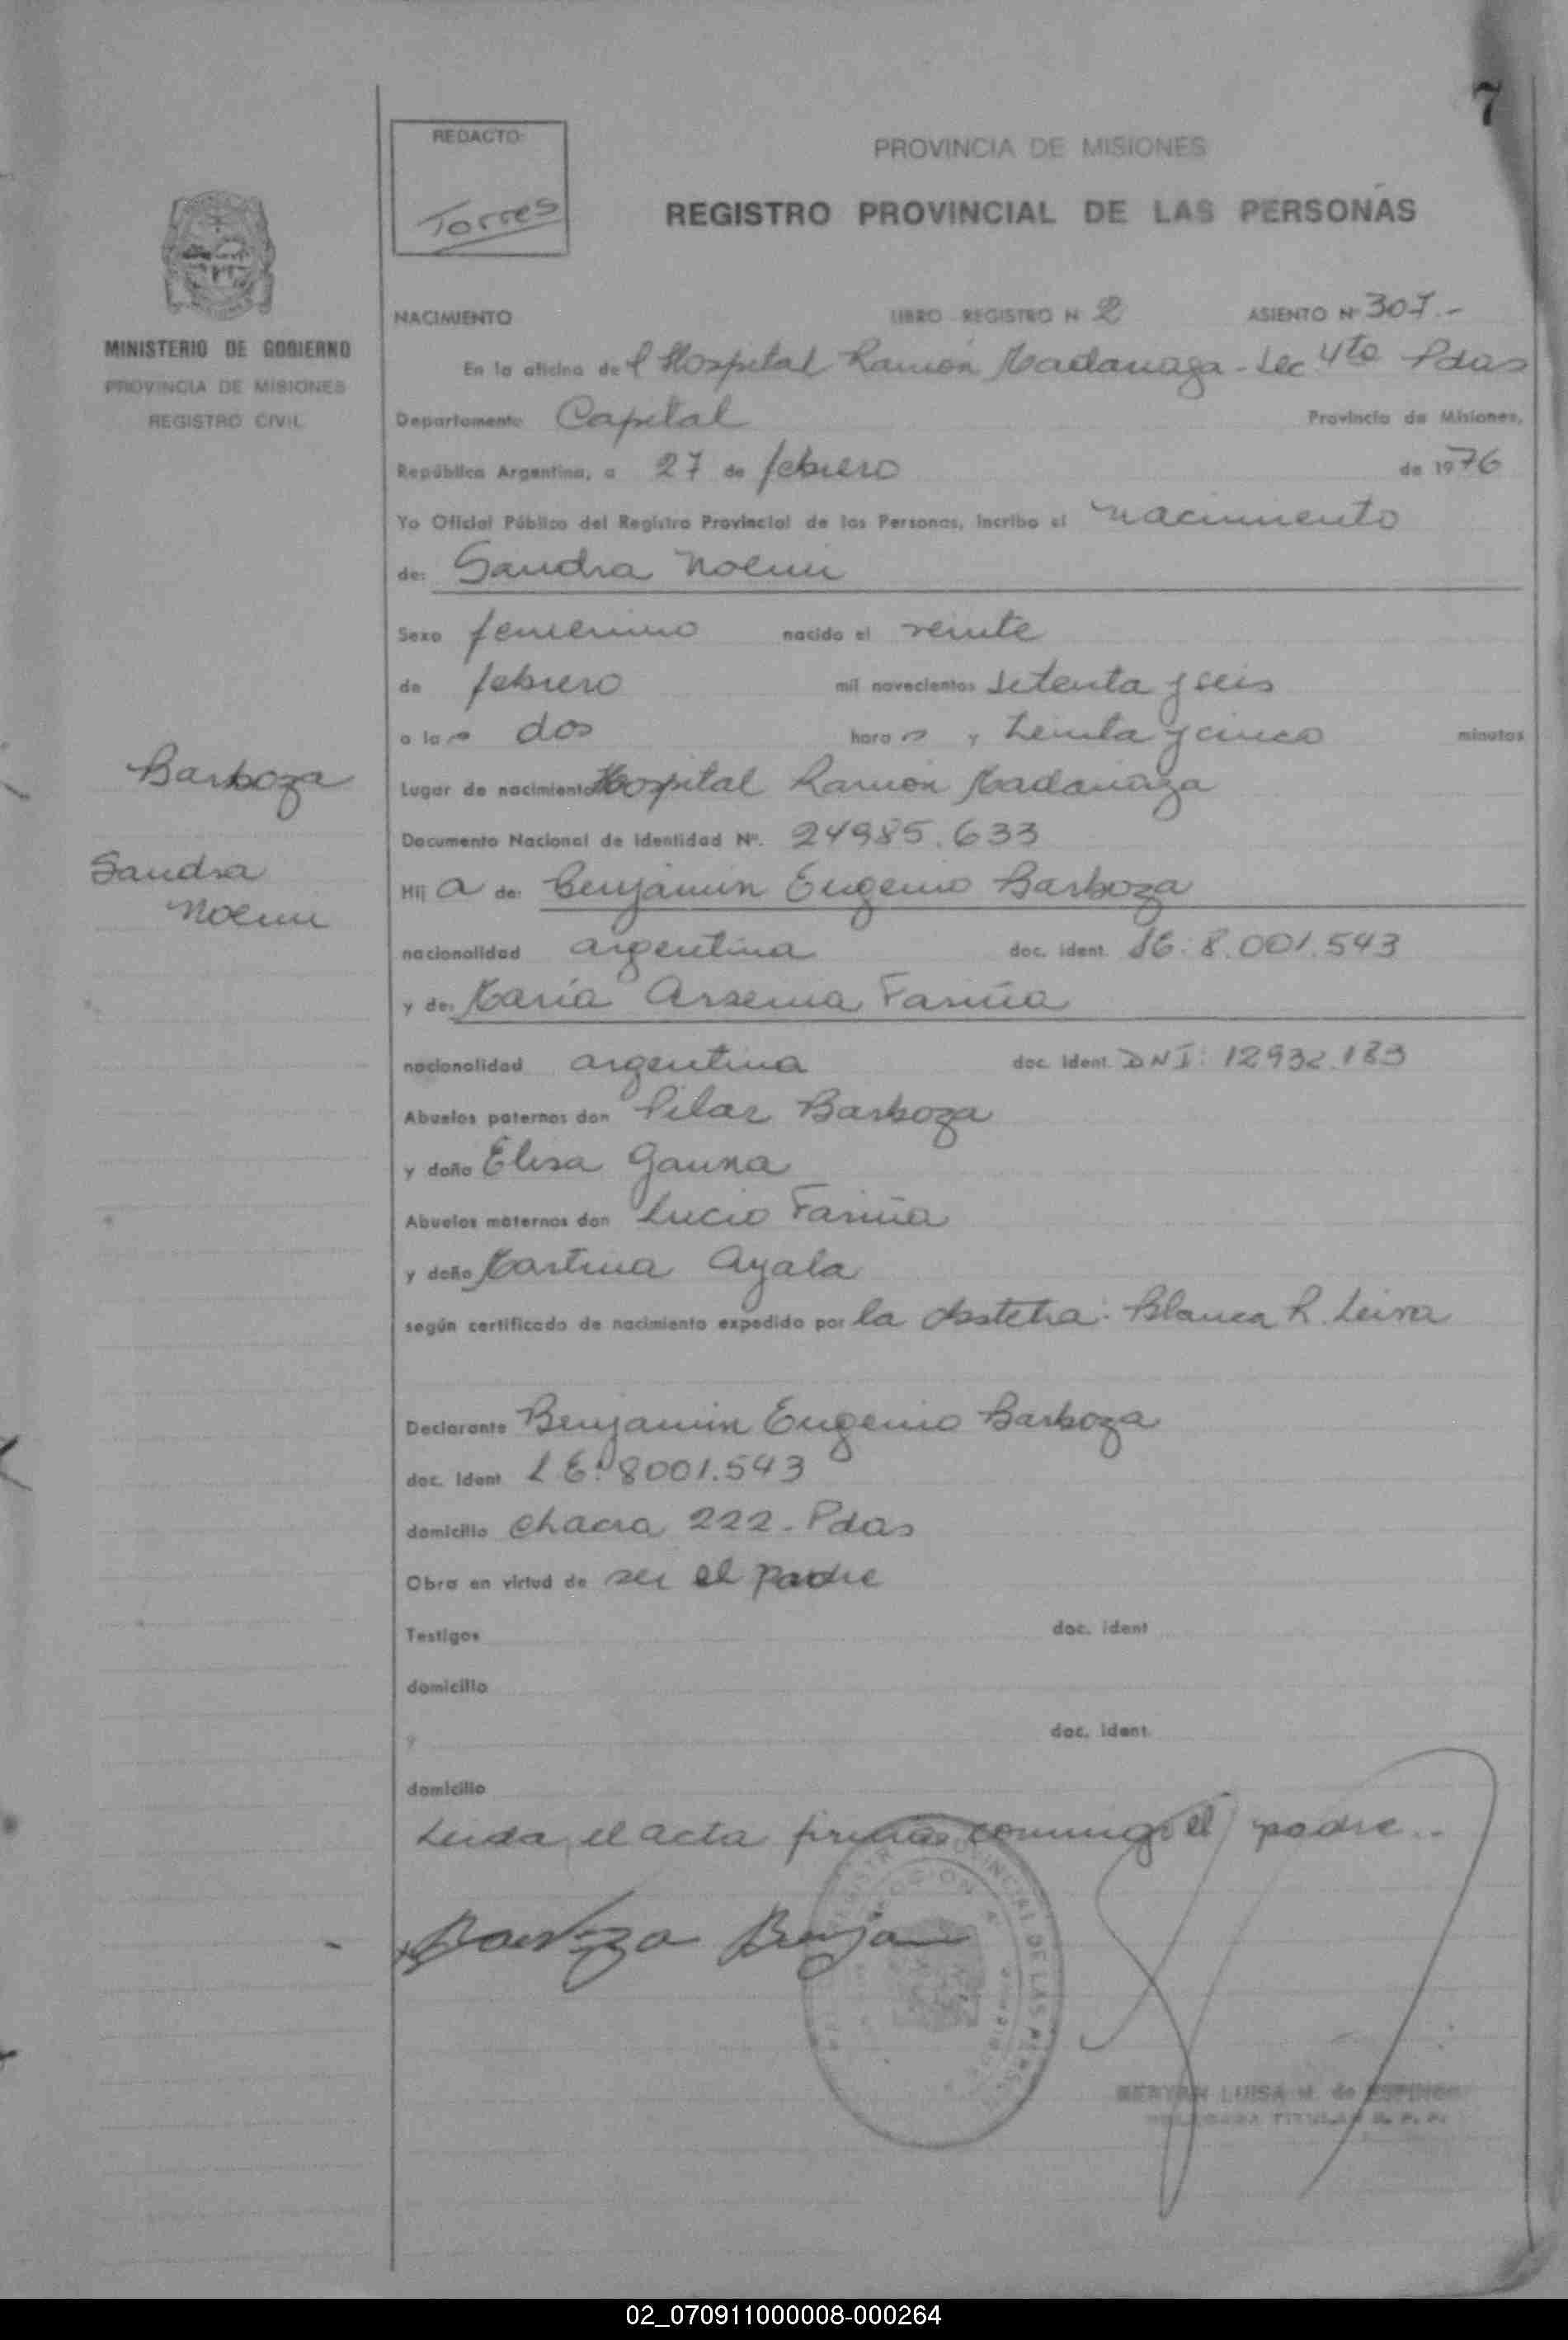 7
REDACTO:
Torres
PROVINCIA DE MISIONES
REGISTRO PROVINCIAL DE LAS PERSONAS
MINISTERIO DE GOBIERNO
PROVINCIA DE MISIONES
REGISTRO CIVIL
NACIMIENTO LIBRO REGISTRO N 2 ASIENTO Nº 307.-
En la oficina del Hospital Ramón Madariaga - Sec 4ta Pdas
Departamento Capital Provincia de Misiones,
República Argentina, a 27 de febrero de 1976
Yo Oficial Público del Registro Provincial de las Personas, incribo el nacimiento
de: Sandra Noemi
Sexo femenino nacido el veinte
de febrero mil novecientos setenta y seis
a las dos horas y treinta y cinco minutos
Barboza
Lugar de nacimiento Hospital Ramón Madariaga
Documento Nacional de Identidad Nº. 24985.633
Sandra
Noemi
Hij a de: Benjamin Eugenio Barboza
nacionalidad argentina doc. ident. LE: 8.001.543
y de: María Arsenia Fariña
nacionalidad argentina doc. ident. DNI: 12932.183
Abuelos paternos don Pilar Barboza
y doña Elisa Gauna
Abuelos maternos don Lucio Fariña
y doña Martina Ayala
según certificado de nacimiento expedido por la obstetra: Blanca R. Leiva
Declarante Benjamin Eugenio Barboza
doc. ident LE: 8001.543
domicilio chacra 222 - Pdas
Obra en virtud de ser el padre
Testigos doc. ident
domicilio
y doc. ident.
domicilio
Leida el acta firma conmigo el padre..
Barboza Benja
REGISTRO PROVINCIAL DE LAS PERS.
LUISA M. de
TITULAR R. P. P.
02_070911000008-000264